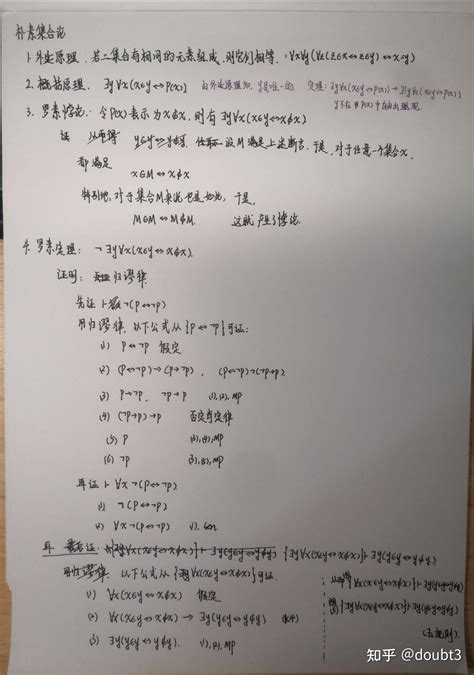 朴素集合论
1. 外延原理. 若二集合有相同的元素组成, 则它们相等. ∀x∀y(∀z(z∈x↔z∈y)↔x=y)
2. 概括原理. ∃y∀x(x∈y↔P(x)) 由外延原理知, y是唯一的
3. 罗素悖论: 令P(x)表示为x∉x, 则有 ∃y∀x(x∈y↔x∉x)
设M满足上述断言. 于是, 对于任意一个集合x,
都满足
x∈M ↔ x∉x
特别地, 对于集合M来说也是如此, 于是,
M∈M ↔ M∉M. 这就产生了悖论.
4. 罗素定理: ¬∃y∀x(x∈y↔x∉x).
证明: 归谬律.
先证 ⊢ ¬(P↔¬P)
用归谬律, 以下公式从{P↔¬P}可证:
(1) P↔¬P 假定
(2) (P↔¬P)→(P→¬P), (P↔¬P)→(¬P→P)
(3) P→¬P, ¬P→P (1),(2),MP
(4) (¬P→P)→P 否定肯定律
(5) P (3),(4),MP
(6) ¬P (3),(5),MP
再证 ⊢ ∀x¬(P↔¬P)
(1) ¬(P↔¬P)
(2) ∀x¬(P↔¬P) (1), Gen
再证: {∃y∀x(x∈y↔x∉x)}⊢∃y(y∈y↔y∉y)
以下公式从{∀x(x∈y↔x∉x)}可证.
(1) ∀x(x∈y↔x∉x) 假定
(2) ∀x(x∈y↔x∉x)→∃y(y∈y↔y∉y) (K4)
(3) ∃y(y∈y↔y∉y). (1),(2),MP
{∀x(x∈y↔x∉x)}⊢∃y(y∈y↔y∉y)
{∃y∀x(x∈y↔x∉x)}⊢∃y(y∈y↔y∉y)
知乎 @doubt3